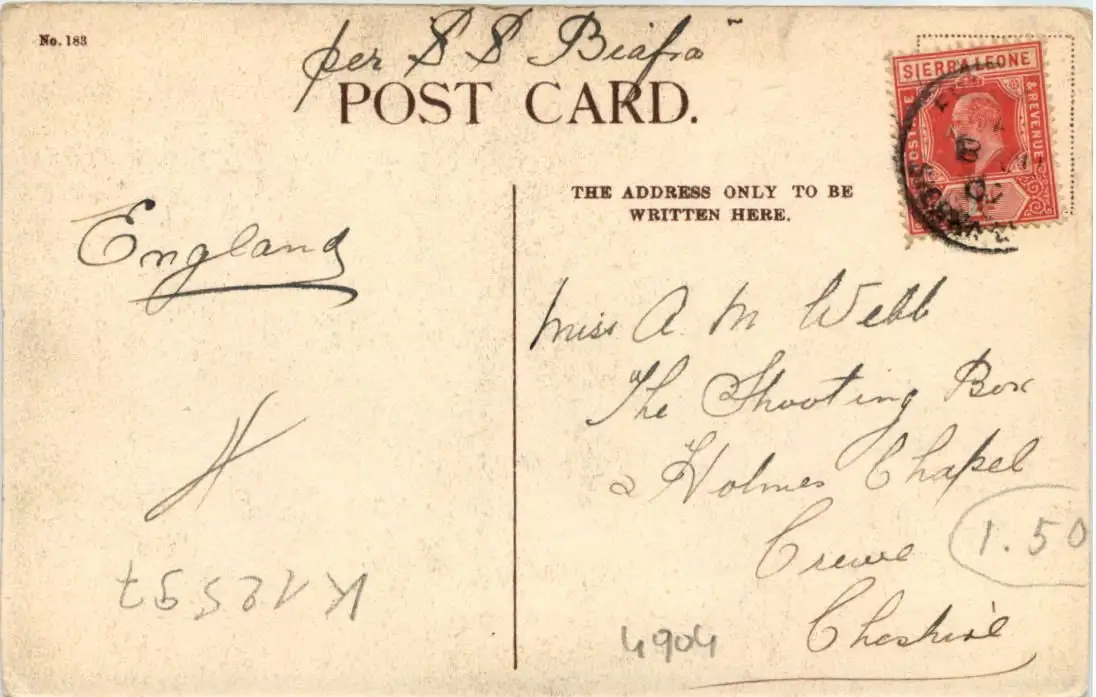 No. 183
per S S Biafra
POST CARD.
SIERRA LEONE
POSTAGE
& REVENUE
THE ADDRESS ONLY TO BE
WRITTEN HERE.
England
Miss A M Webb
The Shooting Box
Holmes Chapel
Crewe
Cheshire
1.50
4904